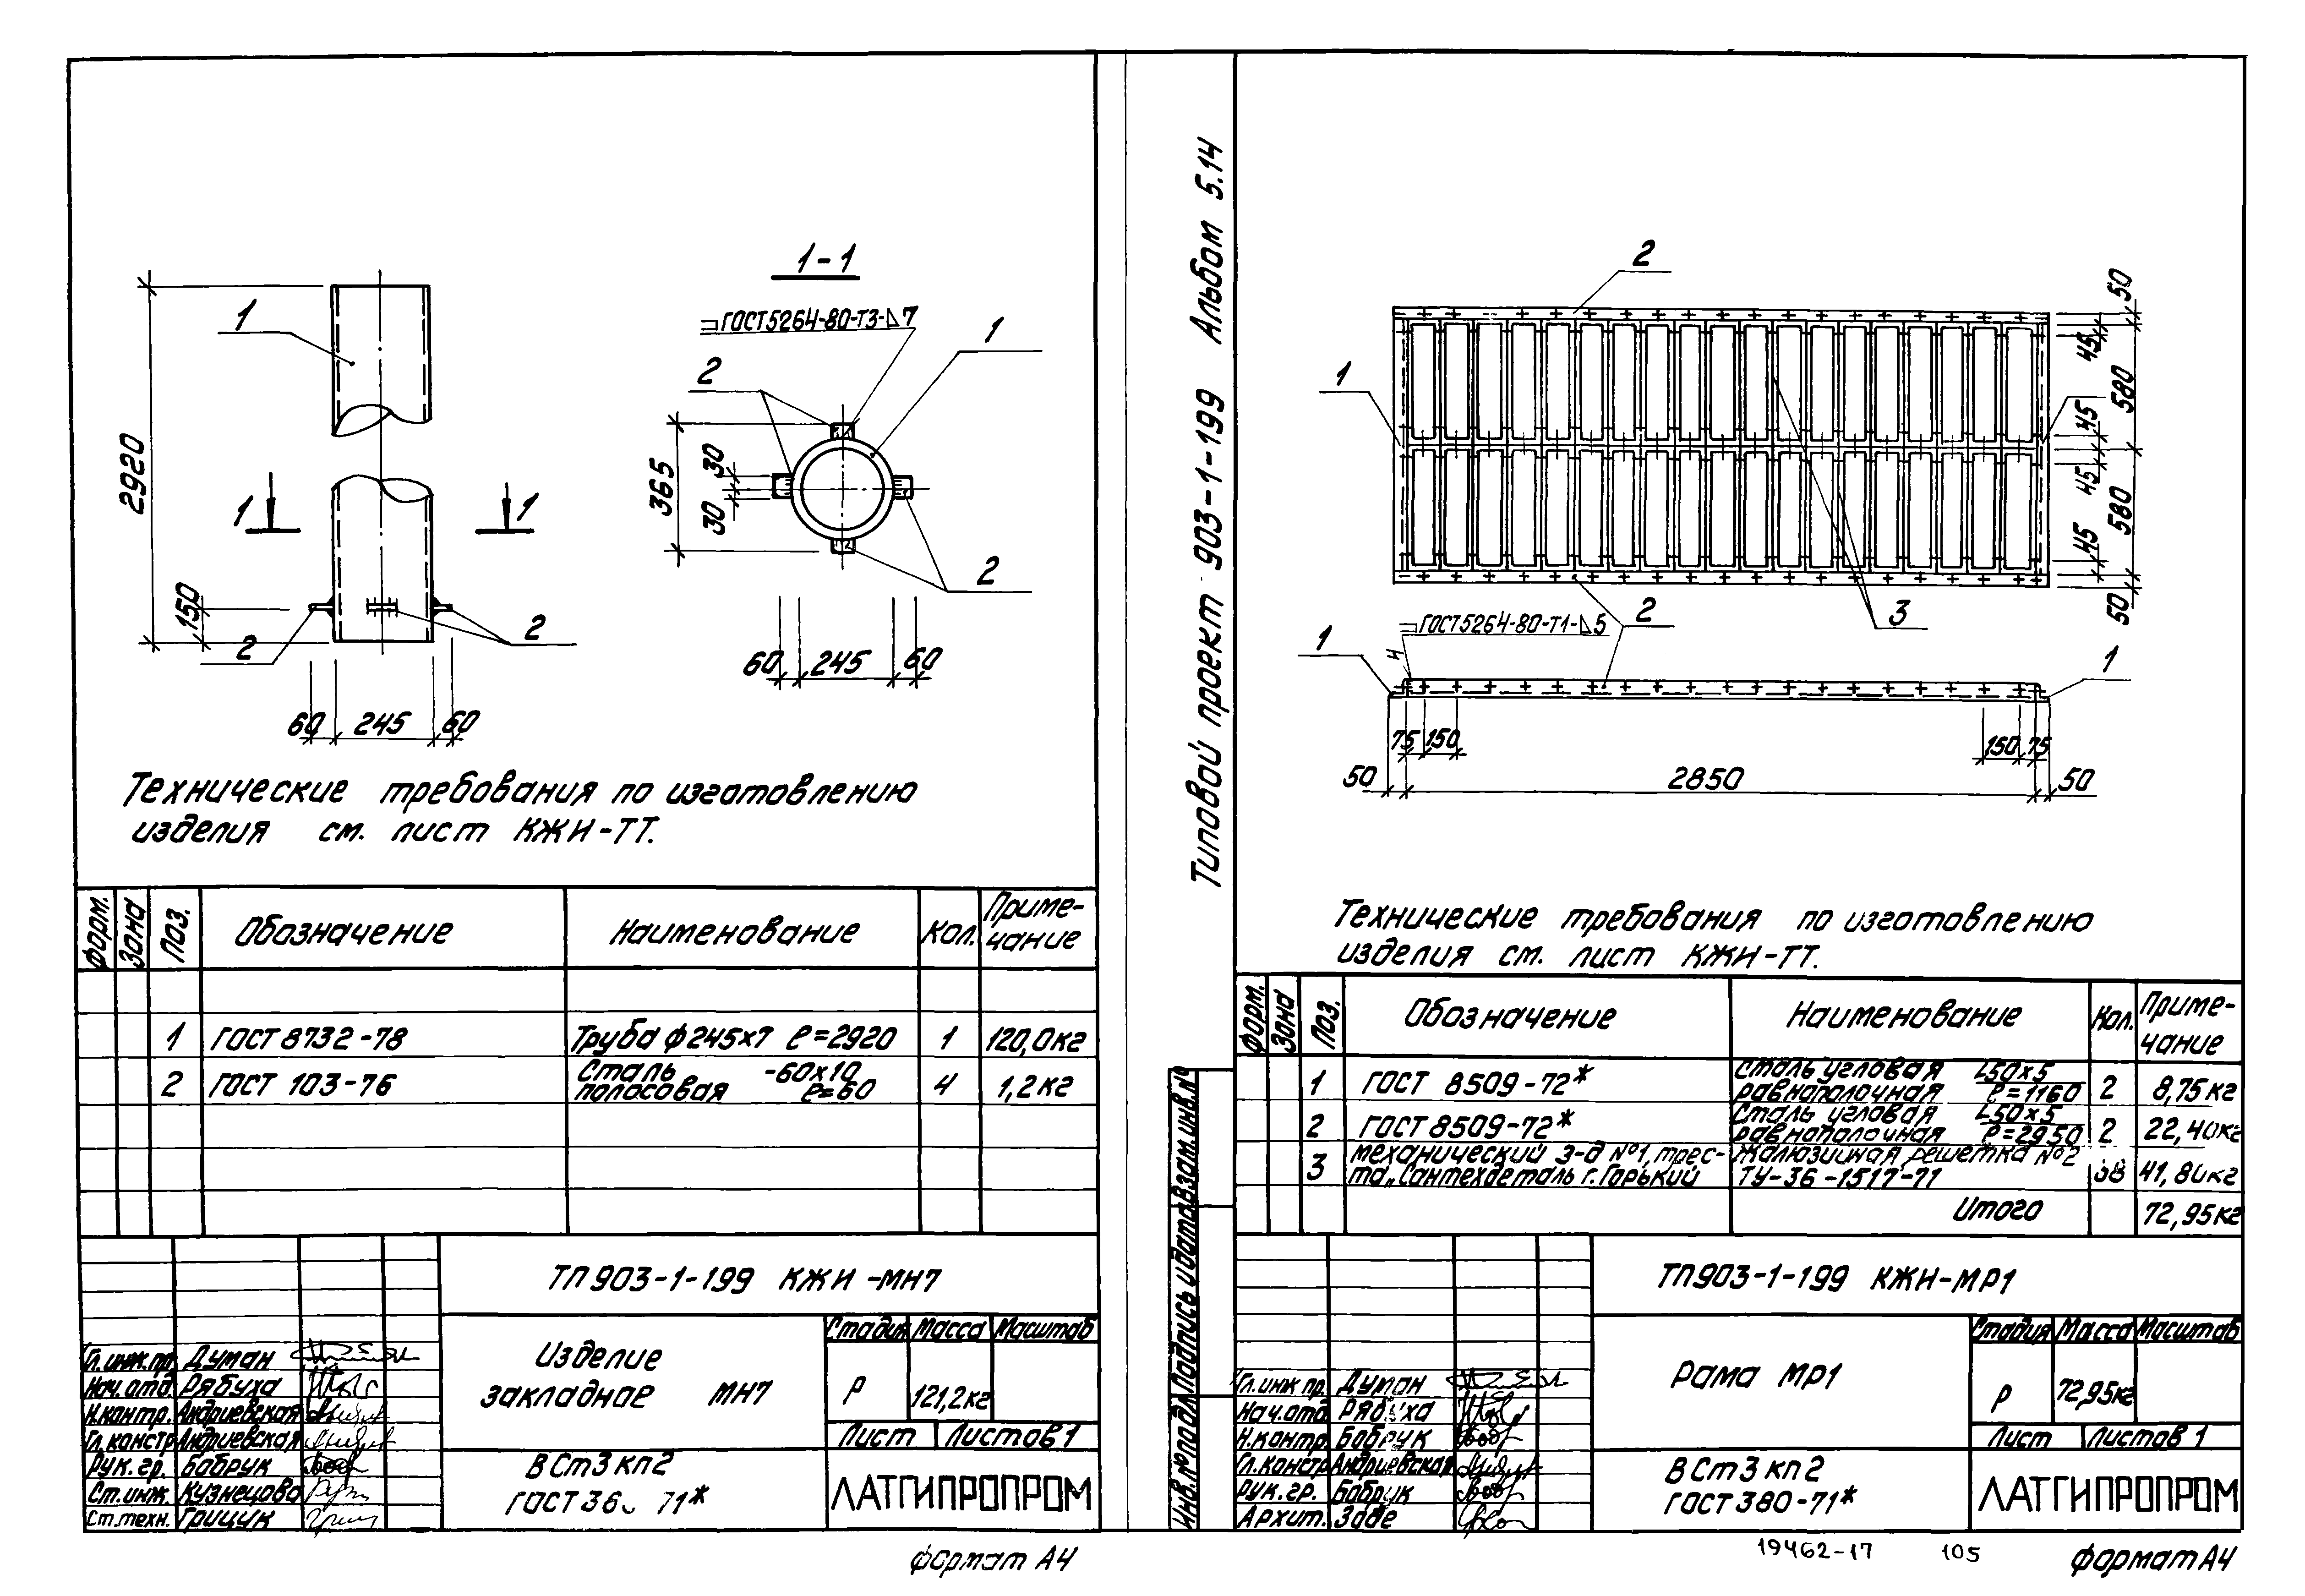 1-1
ГОСТ5264-80-Т3-⊿7
1
1
2
2920
365
30
30
1
1
150
2
2
2
60 245 60
60 245 60
Технические требования по изготовлению
изделия см. лист КЖИ-ТТ.
Форм. Зона Поз. Обозначение Наименование Кол. Приме-
чание
1 ГОСТ 8732-78 Труба ф245х7 ℓ=2920 1 120,0кг
2 ГОСТ 103-76 Сталь -60х10
полосовая ℓ=60 4 1,2кг
ТП903-1-199 КЖИ-МН7
Изделие
закладное МН7
Стадия Масса Масштаб
Р 121,2кг
Лист Листов 1
Гл.инж.пр. Думан
Нач.отд. Рябуха
Н.контр. Андриевская
Гл.констр. Андриевская
Рук.гр. Бабрук
Ст.инж. Кузнецова
Ст.техн. Грицук
ВСт3кп2
ГОСТ 71*
ЛАТГИПРОПРОМ
формат А4
Типовой проект 903-1-199 Альбом 5.14
Инв.№подл. Подпись и дата Взам.инв.№
2
1
50
45
580
45
45
580
45
50
2
3
ГОСТ5264-80-Т1-⊿5
4
1
1
75 150
150 75
50 2850 50
Технические требования по изготовлению
изделия см. лист КЖИ-ТТ.
Форм. Зона Поз. Обозначение Наименование Кол. Приме-
чание
1 ГОСТ 8509-72* Сталь угловая ∟50х5
равнополочная ℓ=1160 2 8,75кг
2 ГОСТ 8509-72* Сталь угловая ∟50х5
равнополочная ℓ=2950 2 22,40кг
3 механический з-д №1, трес-
та „Сантехдеталь г.Горький Жалюзийная решетка №2
ТУ-36-1517-71 38 41,80кг
Итого 72,95кг
ТП903-1-199 КЖИ-МР1
Рама МР1
Стадия Масса Масштаб
Р 72,95кг
Лист Листов 1
Гл.инж.пр. Думан
Нач.отд. Рябуха
Н.контр. Бабрук
Гл.констр. Андриевская
Рук.гр. Бабрук
Архит. Заде
ВСт3кп2
ГОСТ 380-71*
ЛАТГИПРОПРОМ
19462-17 105
формат А4